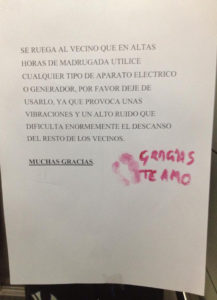 SE RUEGA AL VECINO QUE EN ALTAS
HORAS DE MADRUGADA UTILICE
CUALQUIER TIPO DE APARATO ELECTRICO
O GENERADOR, POR FAVOR DEJE DE
USARLO, YA QUE PROVOCA UNAS
VIBRACIONES Y UN ALTO RUIDO QUE
DIFICULTA ENORMEMENTE EL DESCANSO
DEL RESTO DE LOS VECINOS.
MUCHAS GRACIAS.
GRACIAS
TE AMO